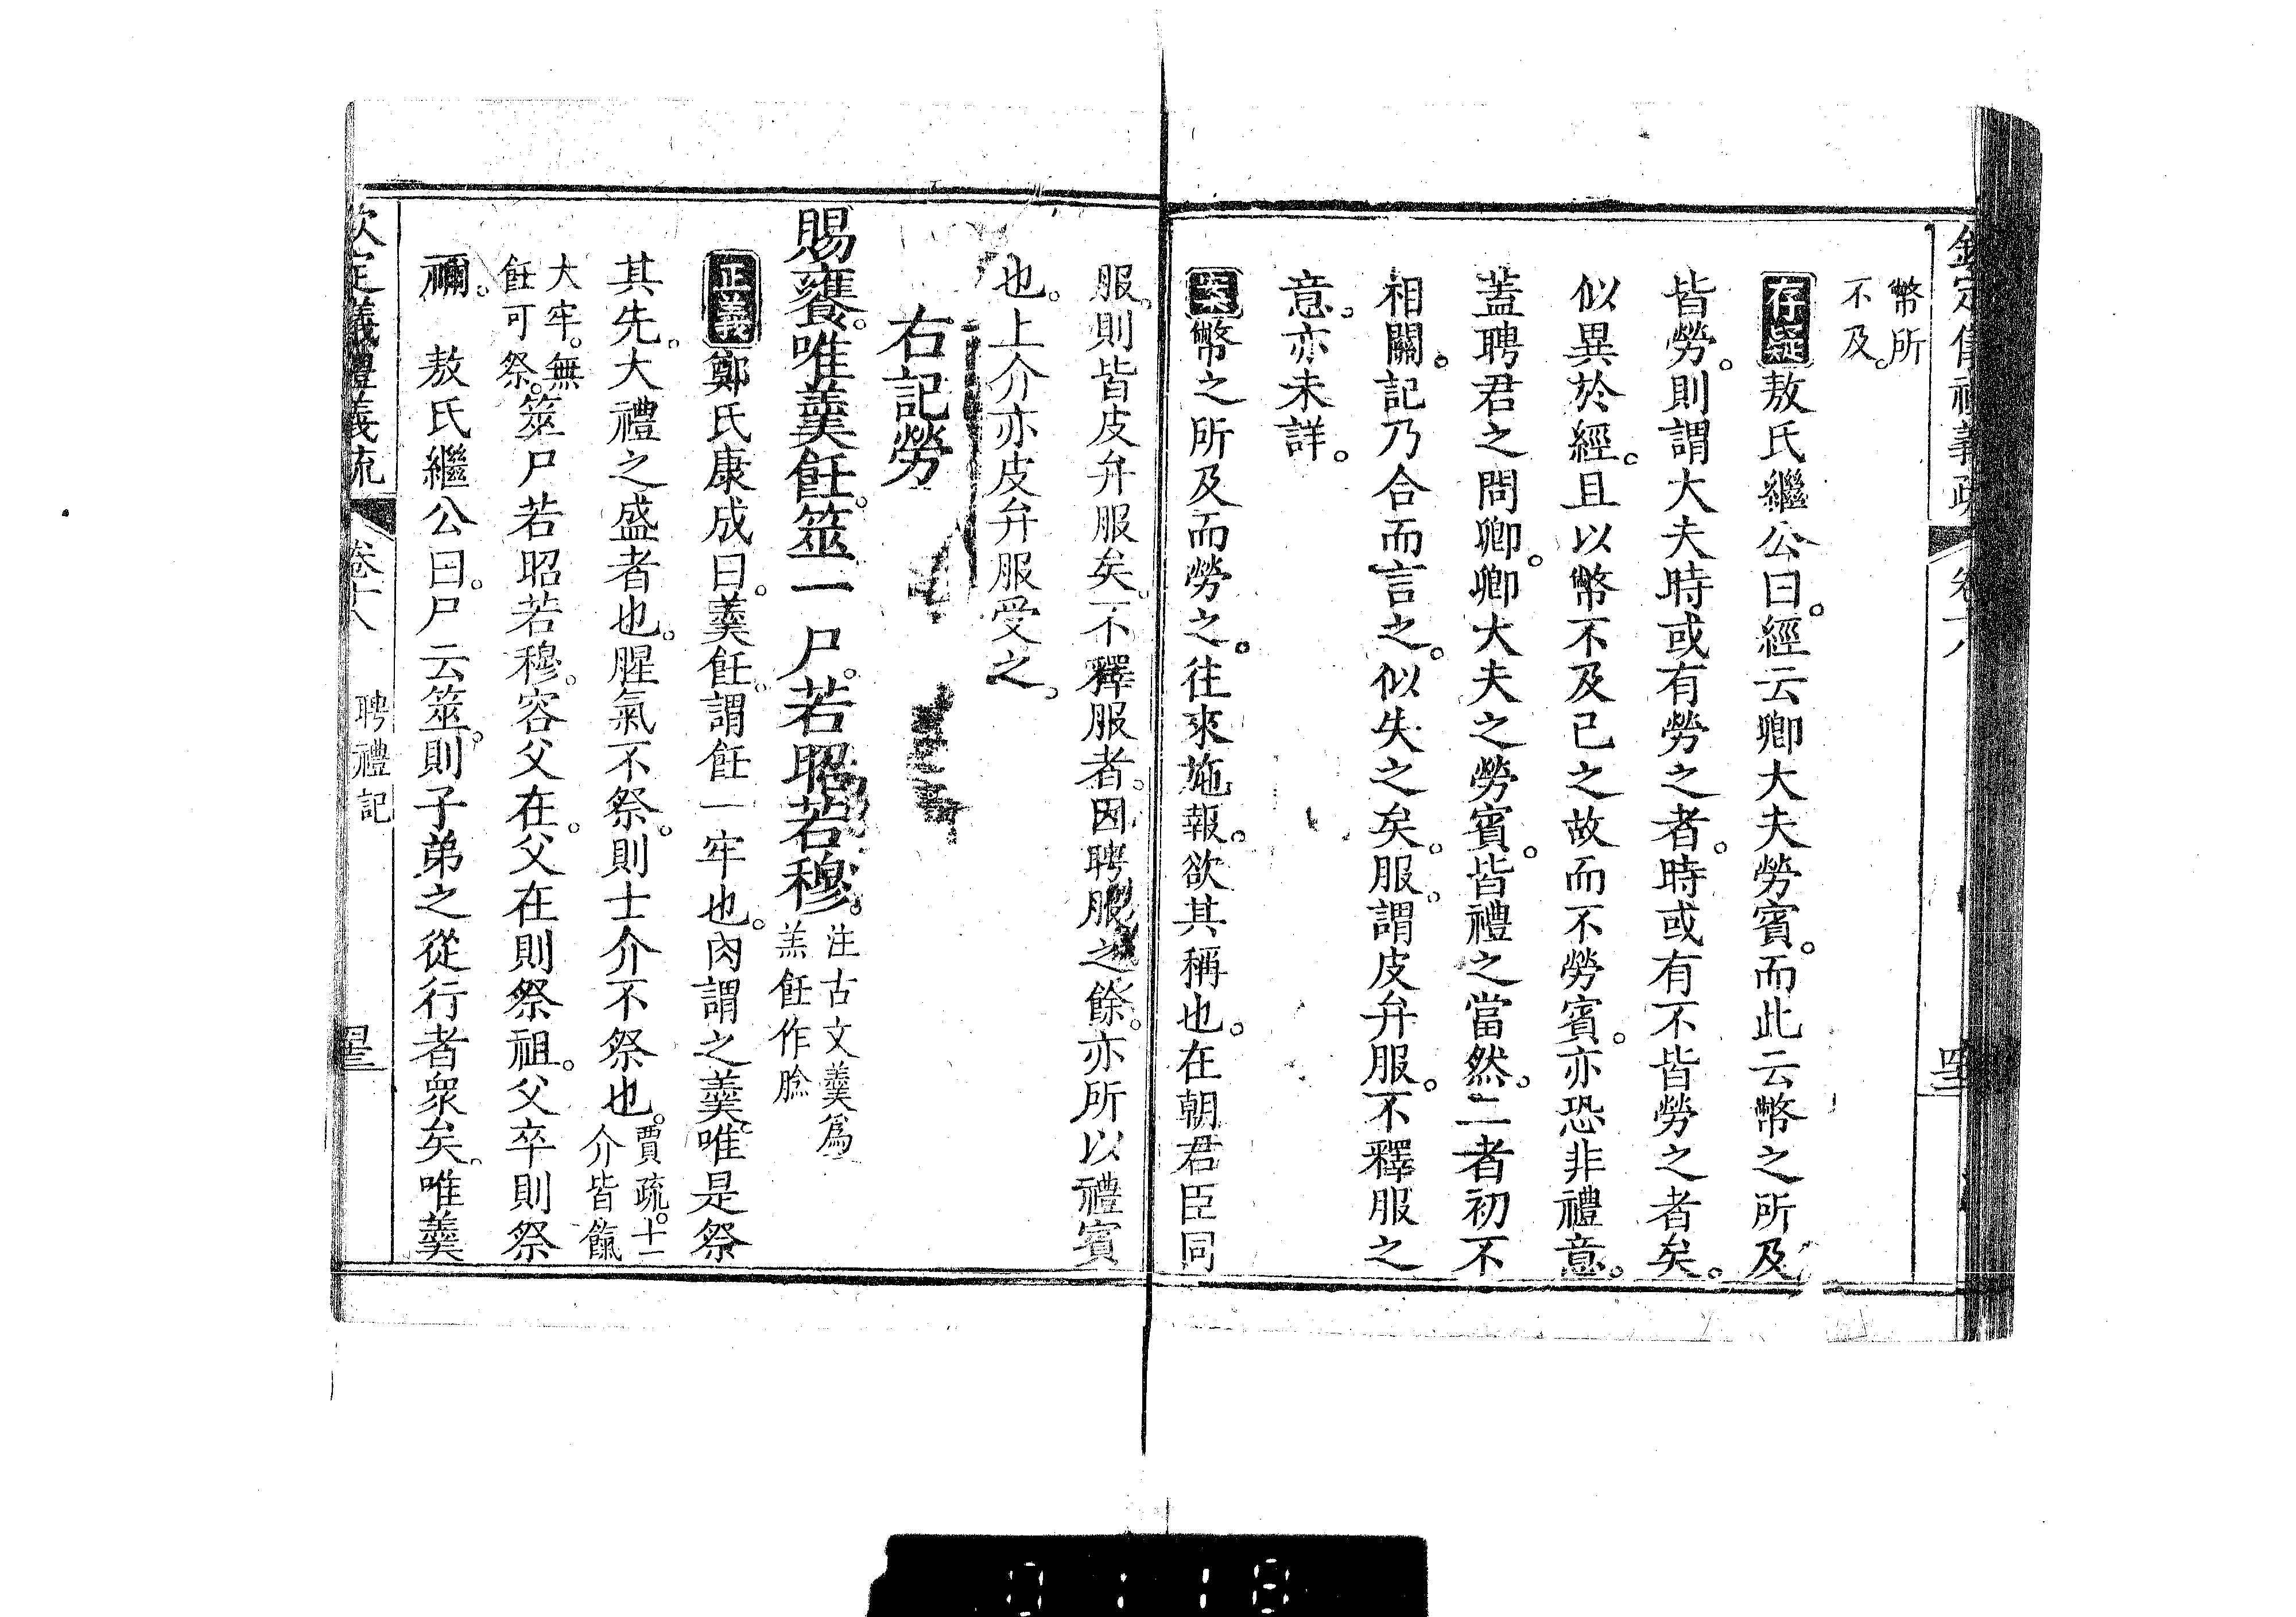 幣所
不及。
存疑敖氏繼公曰。經云卿大夫勞賓。而此云幣之所及
皆勞。則謂大夫時或有勞之者。時或有不皆勞之者矣。
似異於經。且以幣不及已之故而不勞賓。亦恐非禮意。
蓋聘君之問卿。卿大夫之勞賓。皆禮之當然。二者初不
相關。記乃合而言之。似失之矣。服。謂皮弁服。不釋服之
意。亦未詳。
案幣之所及而勞之。往來施報。欲其稱也。在朝君臣同
服。則皆皮弁服矣。不釋服者。因聘服之餘。亦所以禮賓
也。上介亦皮弁服受之。
右記勞
賜饔。唯羹飪。筮一尸。若昭若穆。注古文羹爲
羔飪作腍
正義鄭氏康成曰。羹飪。謂飪一牢也。肉謂之羹。唯是祭
其先。大禮之盛者也。腥氣不祭。則士介不祭也。賈疏。士
介皆餼
大牢。無
飪可祭。筮尸若昭若穆。容父在。父在則祭祖。父卒則祭
禰。 敖氏繼公曰。尸云筮。則子弟之從行者衆矣。唯羹
欽定儀禮義疏 卷十八 聘禮記
0118